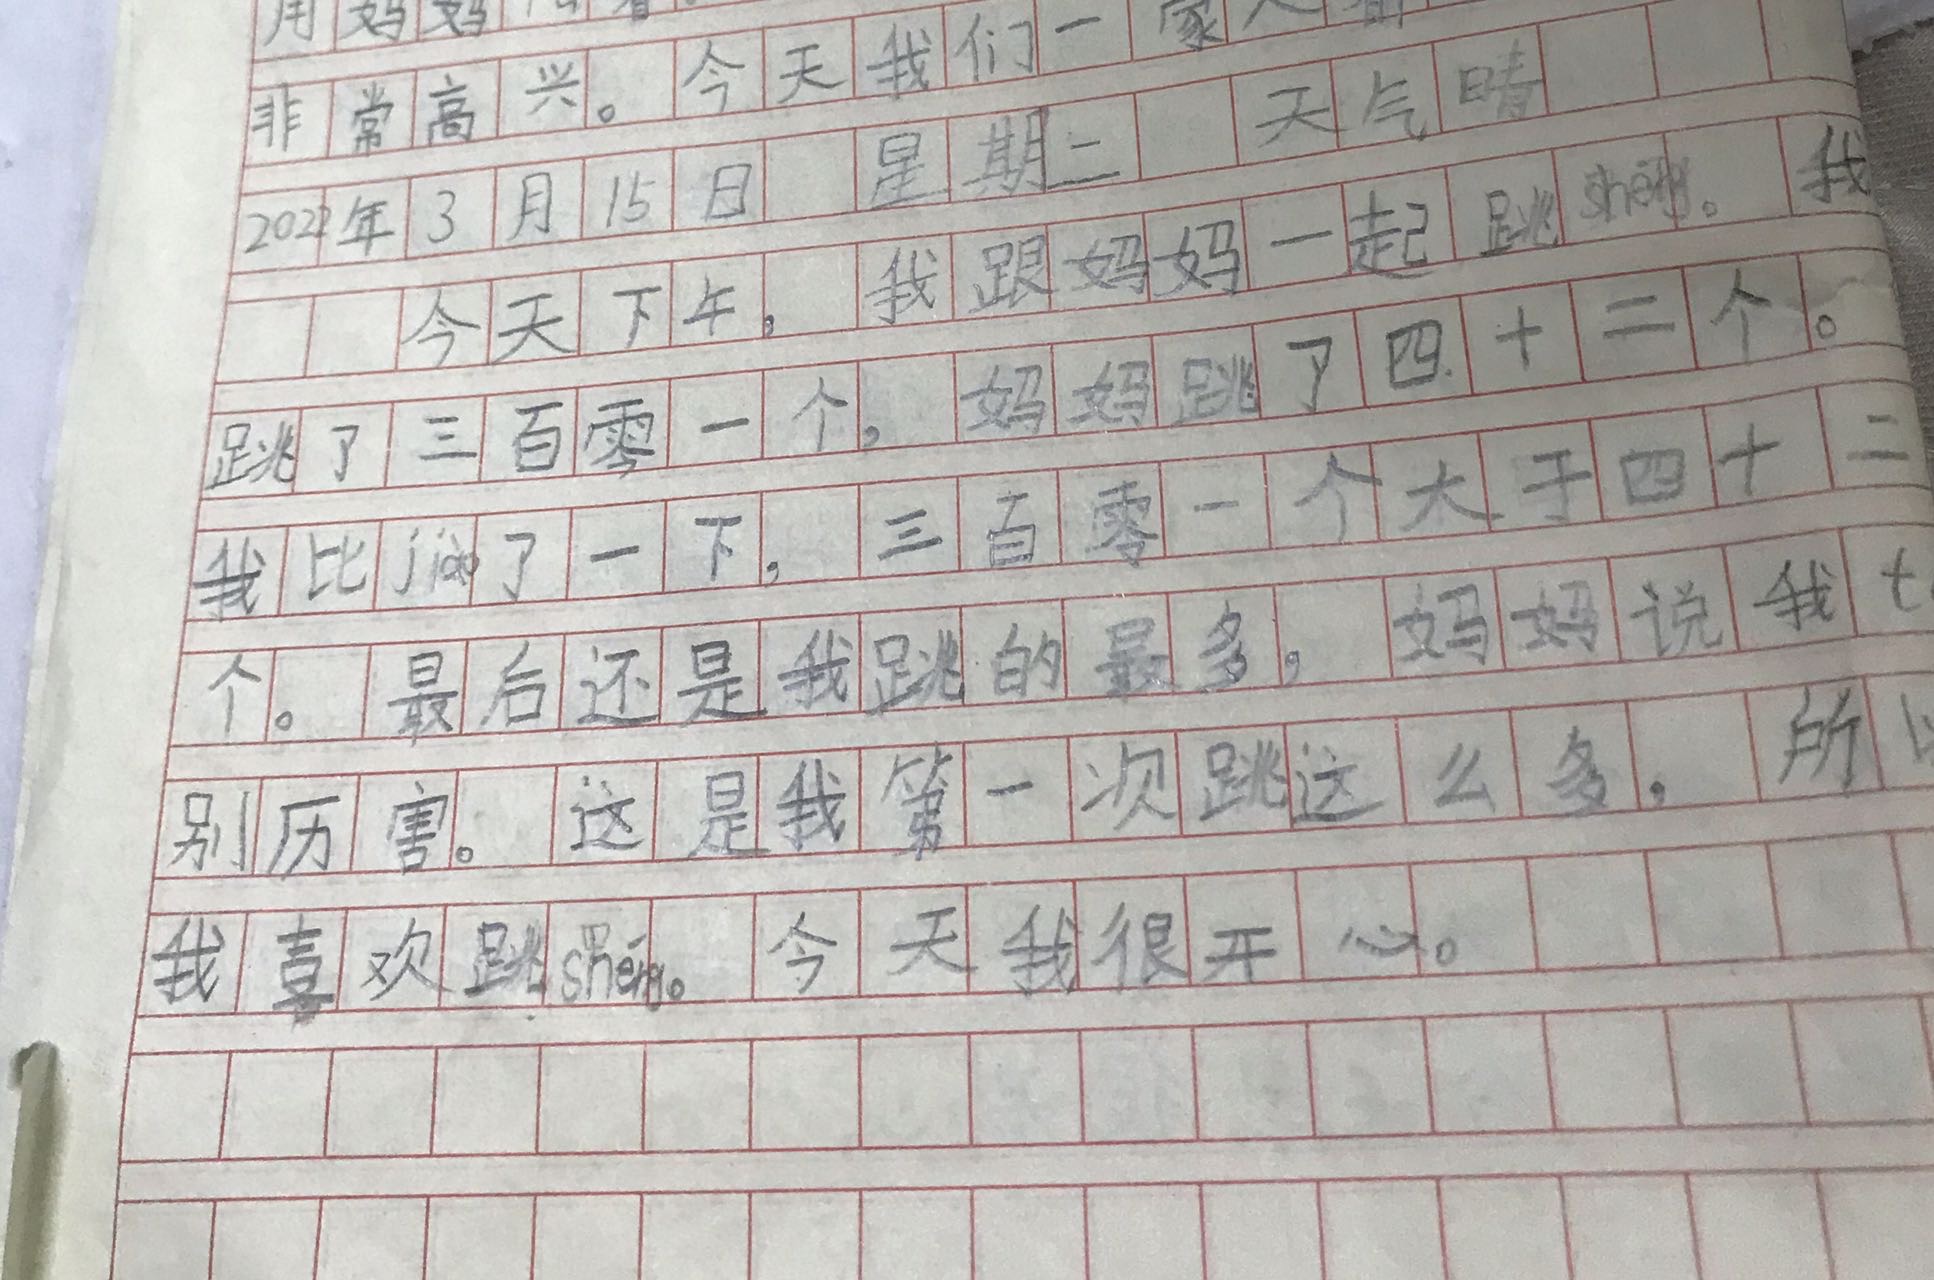 用妈妈
非常高兴。今天我们一家人都
2022年3月15日 星期二 天气晴
今天下午，我跟妈妈一起跳shéng。我
跳了三百零一个，妈妈跳了四十二个。
我比jiào了一下，三百零一个大于四十二
个。最后还是我跳的最多，妈妈说我t
别历害。这是我第一次跳这么多，所以
我喜欢跳shéng。今天我很开心。